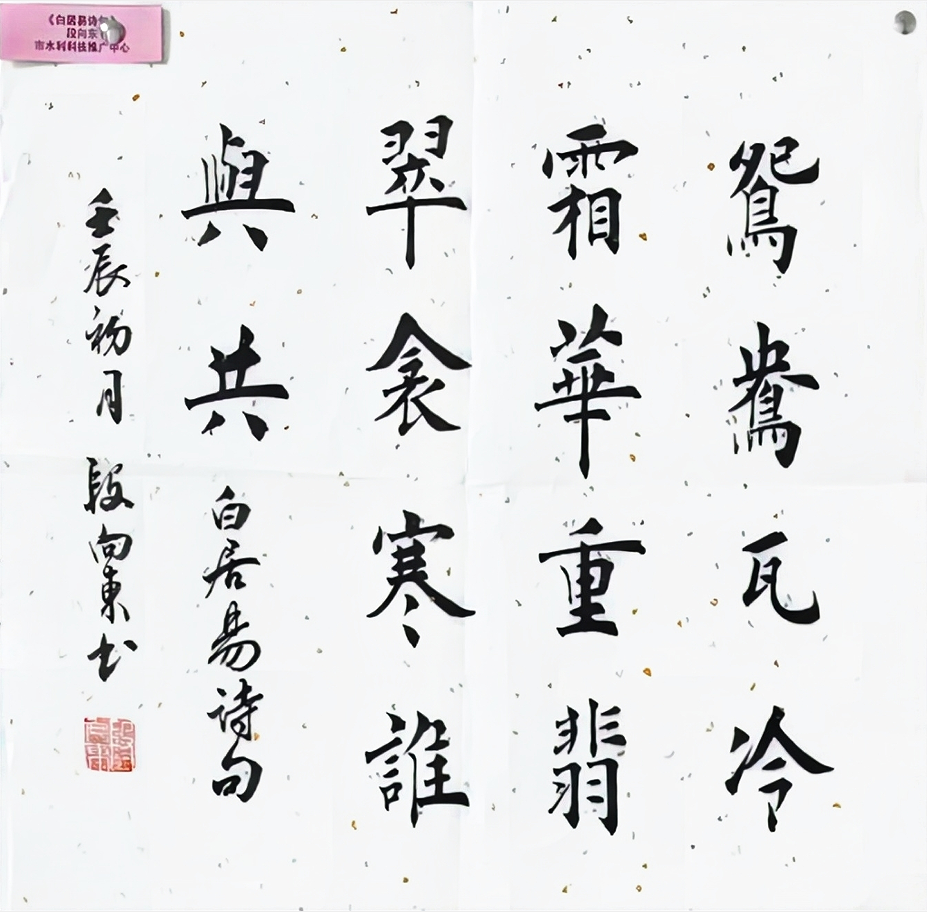 鴛鴦瓦冷
霜華重翡
翠衾寒誰
與共
白居易诗句
壬辰初月 段向東书
《白居易诗句》
段向东
市水利科技推广中心